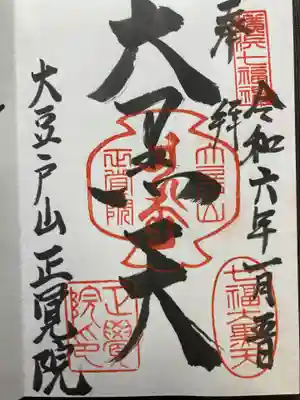 奉拝
横浜七福神
令和六年一月吉日
大黒天
大豆戸山
正覚院
七福大黒天
大豆戸山 正覚院
正覺院印